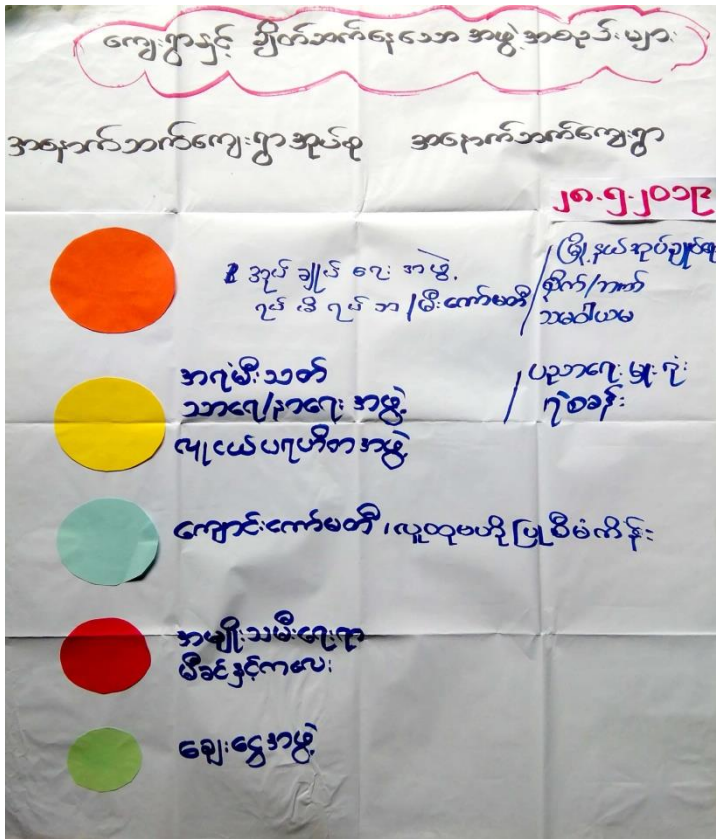 ကျေးရွာနှင့် ချိတ်ဘက်နေသော အဖွဲ့အစည်းများ
အနောက်ဘက်ကျေးရွာအုပ်စု အနောက်ဘက်ကျေးရွာ
၂၈.၅.၂၀၁၉
အုပ်ချုပ်ရေးအဖွဲ့
ရပ်မိရပ်ဖ/မီးကော်မတီ
/မြို့နယ်အုပ်ချုပ်ရေး
စိုက်/ဘဏ်
သမဝါယမ
အရံမီးသတ်
သာရေး/နာရေးအဖွဲ့
လူငယ်ပရဟိတအဖွဲ့
/ပညာရေးမှူးရုံး
ရဲစခန်း
ကျောင်းကော်မတီ၊လူထုဗဟိုပြုစီမံကိန်း
အမျိုးသမီးရေးရာ
မိခင်နှင့်ကလေး
ချေးငွေအဖွဲ့